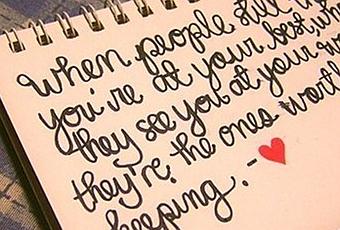 When people still
you're at your best, wh
they see you at your wo
they're the ones worth
keeping.-